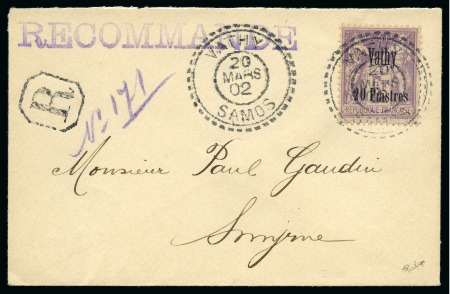 RECOMMANDÉ
VATHY
20
MARS
02
SAMOS
Vathy
20 Piastres
RÉPUBLIQUE FRANÇAISE
R
N° 171
Monsieur Paul Gaudin
Smyrne